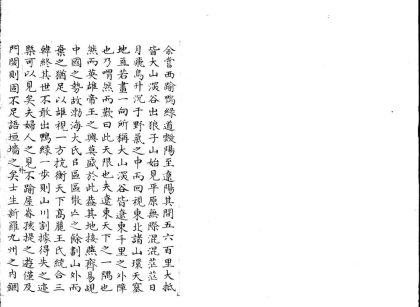 余嘗西踰鴨綠道靉陽至遼陽其間五六百里大抵
皆大山深谷出狼子山始見平原無際混混茫茫日
月飛鳥升沉于野氣之中而回視東北諸山環天塞
地亘若畫一向所稱大山深谷皆遼東千里之外障
也乃喟然而歎曰此天限也夫遼東天下之一隅也
然而英雄帝王之興莫盛於此蓋其地接燕齊易覘
中國之勢故渤海大氏以區區散亡之餘劃山外而
棄之猶足以雄視一方抗衡天下高麗王氏統合三
韓終其世不敢出鴨綠一步則山川割據得失之迹
槩可以見矣夫婦人之見不踰屋脊孩提之遊僅及
門閾則固不足語垣墻之外矣士生新羅九州之內錮